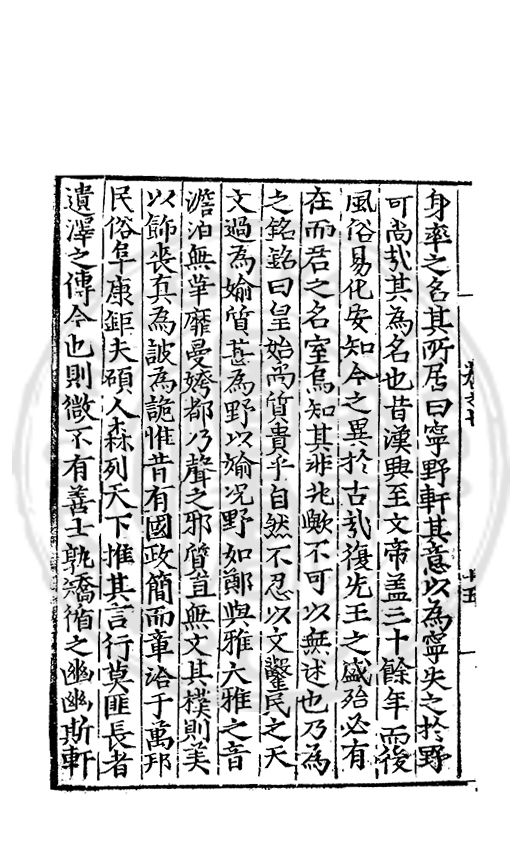 身率之名其所居曰寧野軒其意以為寧失之於野
可尚㢤其為名也昔漢興至文帝盖三十餘年而後
風俗易化安知今之異於古㢤復先王之盛殆必有
在而君之名室烏知其非兆歟不可以無述也乃為
之銘銘曰皇始尚質貴乎自然不忍以文鑿民之天
文過為媮質甚為野以媮况野如鄭與雅大雅之音
澹泊無華靡曼姱都乃聲之邪質直無文其樸則美
以飾喪真為詖為詭惟昔有國政簡而章洽于萬邦
民俗阜康鉅夫碩人森列天下推其言行莫匪長者
遺澤之傳今也則微不有善士孰矯循之幽幽斯軒